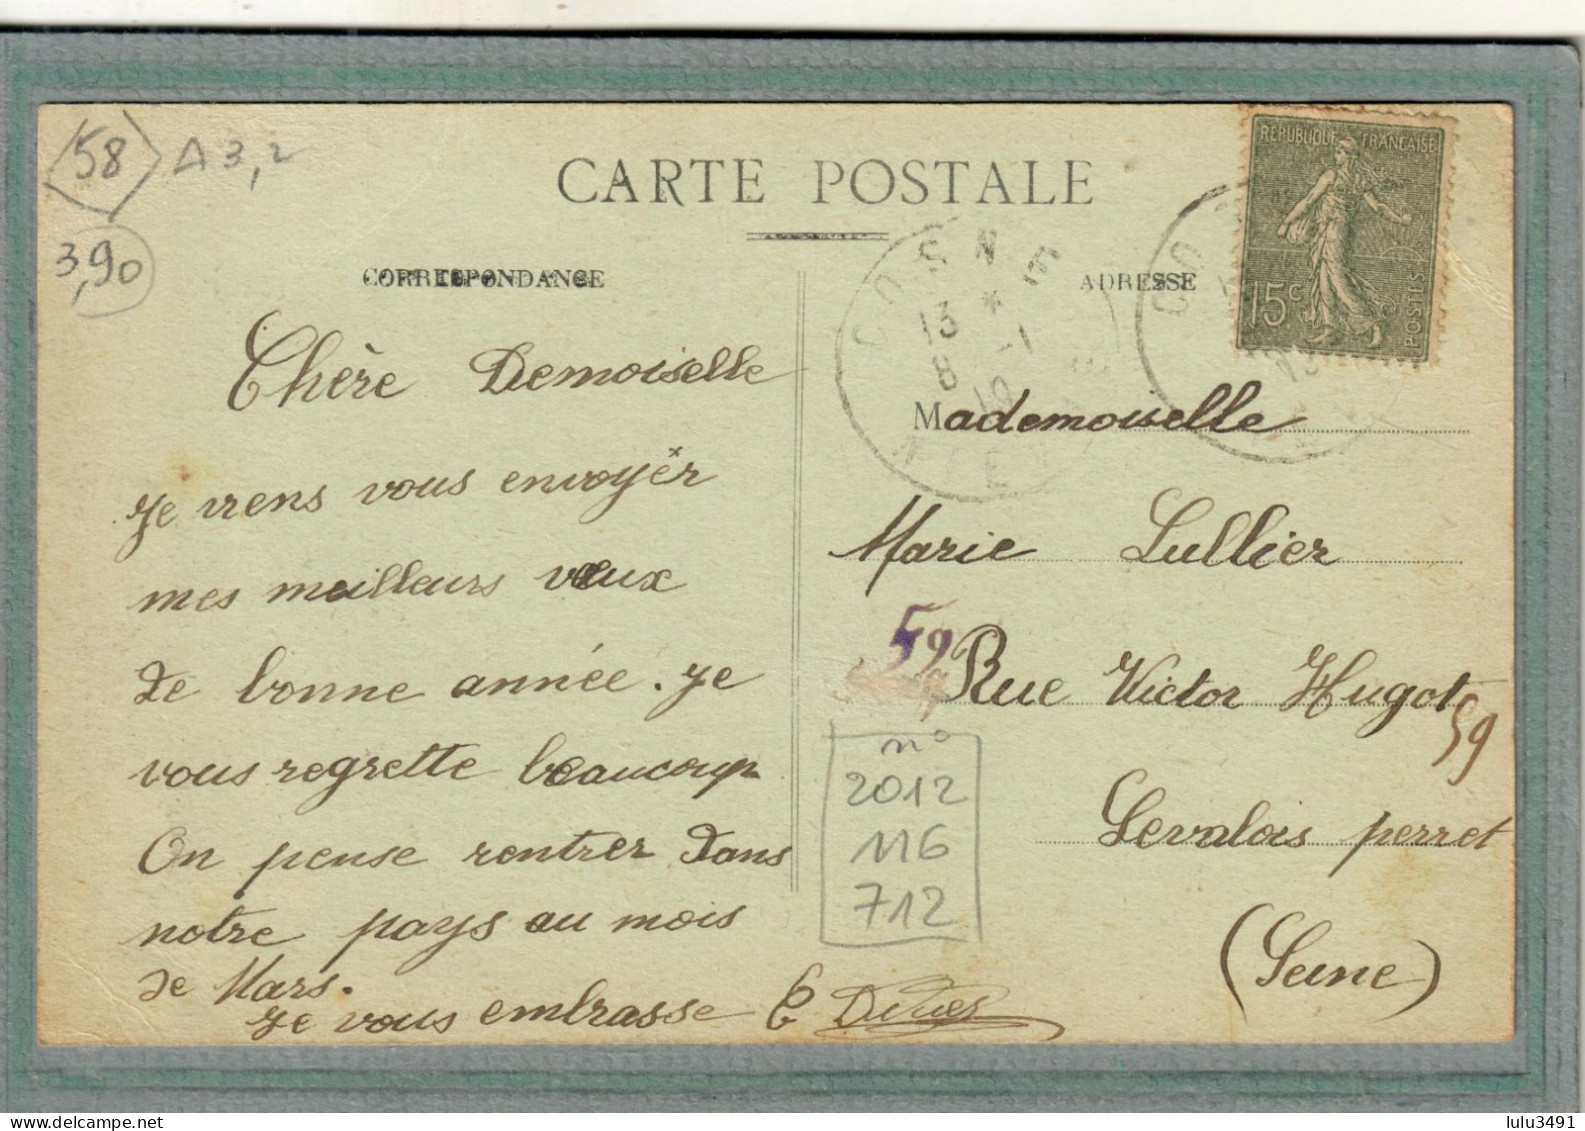 58 A 3,2
3,90
CARTE POSTALE
CORRESPONDANCE
ADRESSE
REPUBLIQUE FRANÇAISE
15c
POSTES
COSNE
13 * -1
8 19
NIEV
Chère Demoiselle
Je viens vous envoyér
mes meilleurs vœux
de bonne année. Je
vous regrette beaucoup
On pense rentrer dans
notre pays au mois
de Mars.
Je vous embrasse E
Mademoiselle
Marie Lullier
59 Rue Victor Hugot
59
Levalois perret
(Seine)
n°
2012
116
712
www.delcampe.net
lulu3491